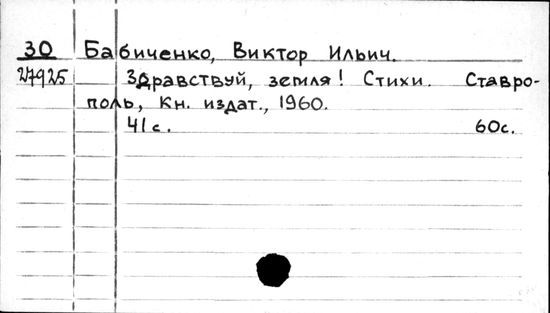 30 Бабиченко, Виктор Ильич.
27925 Здравствуй, земля! Стихи. Ставро-
поль, Кн. издат., 1960.
41с. 60с.